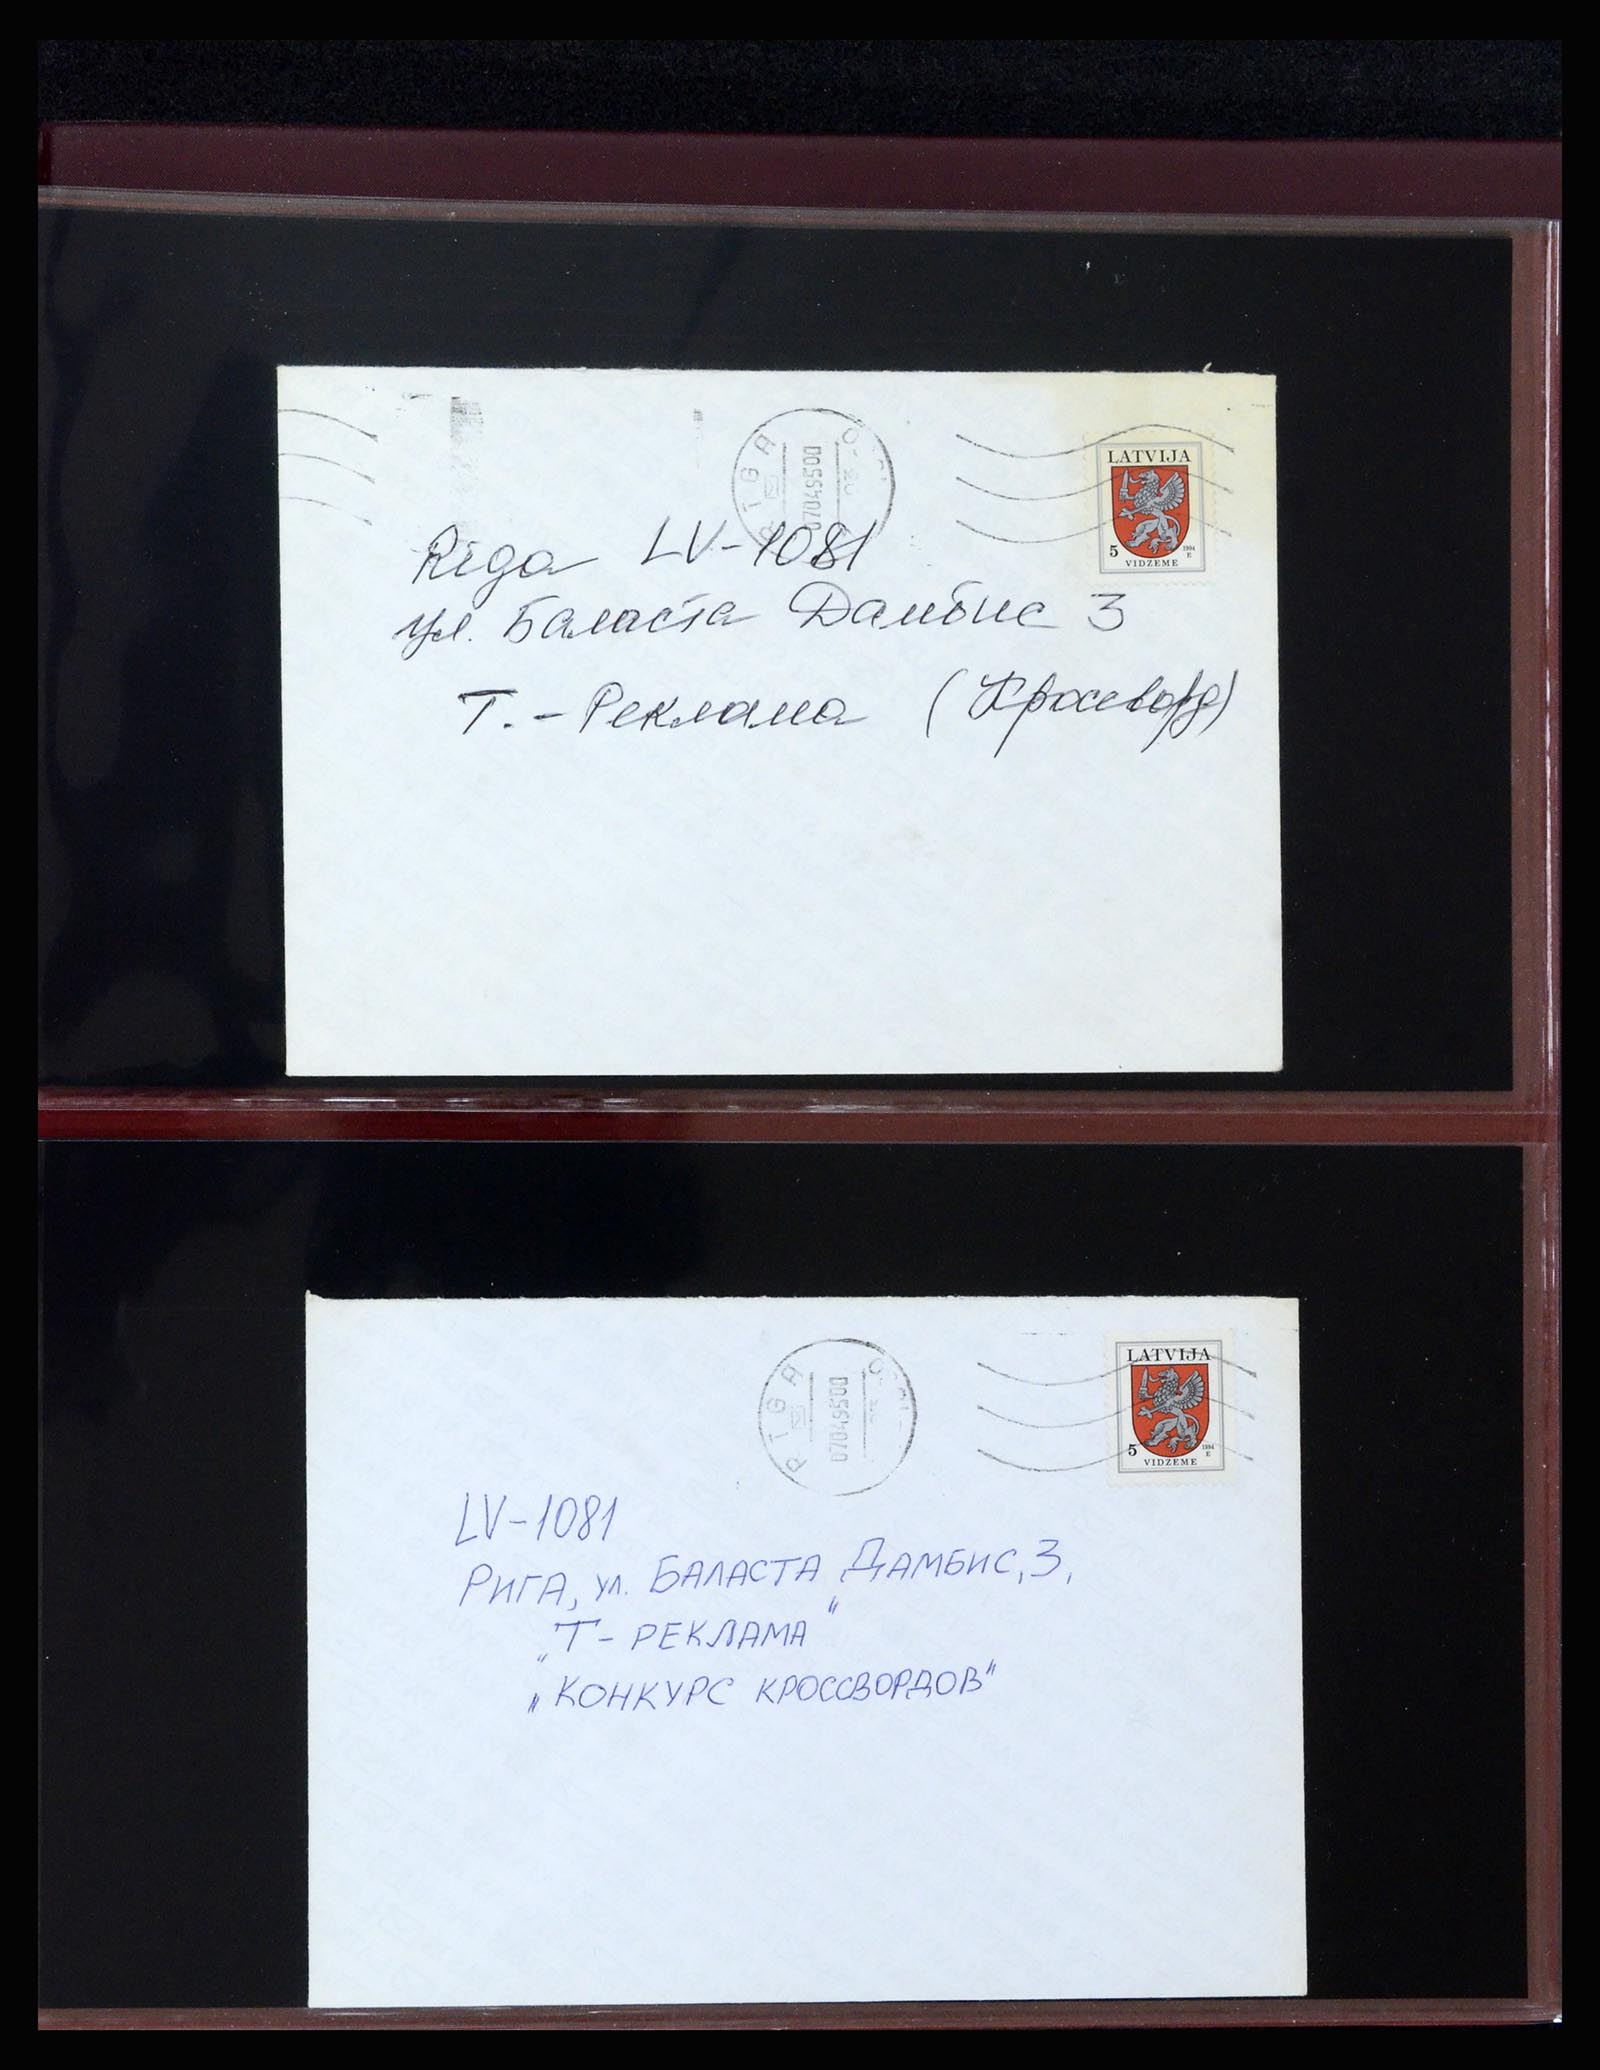 RIGA
07049500
LATVIJA
5
1994
E
VIDZEME
Riga LV-1081
ул. Баласта Дамбис 3
Т. - Реклама (Кроссворд)
RIGA
07049500
LATVIJA
5
1994
E
VIDZEME
LV-1081
РИГА, УЛ. БАЛАСТА ДАМБИС, 3,
„Т- РЕКЛАМА"
„КОНКУРС КРОССВОРДОВ"